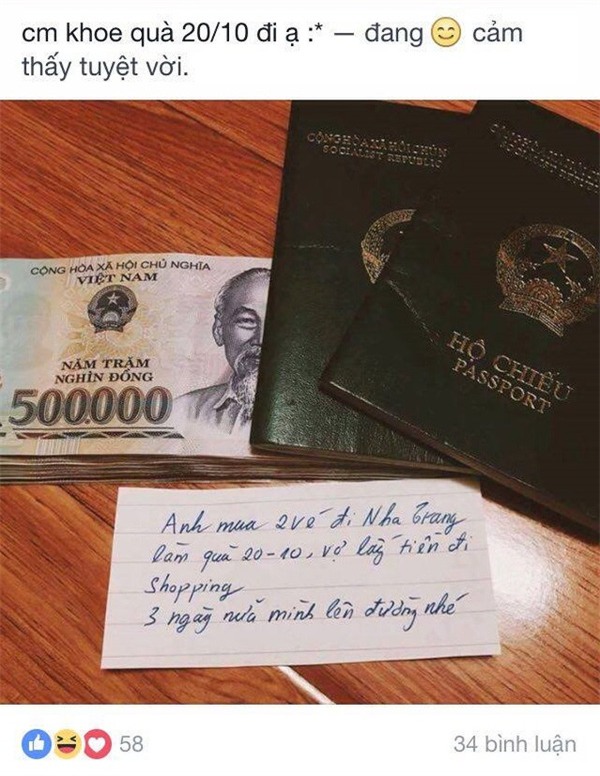 cm khoe quà 20/10 đi ạ :* — đang 😊 cảm
thấy tuyệt vời.
CỘNG HÒA XÃ HỘI CHỦ NGHĨA
VIỆT NAM
NĂM TRĂM
NGHÌN ĐỒNG
500.000
CỘNG HÒA XÃ HỘI CHỦ N
SOCIALIST REPUBLIC
HỘ CHIẾU
PASSPORT
Anh mua 2 vé đi Nha Trang
làm quà 20-10, vợ lấy tiền đi
Shopping
3 ngày nữa mình lên đường nhé
58
34 bình luận